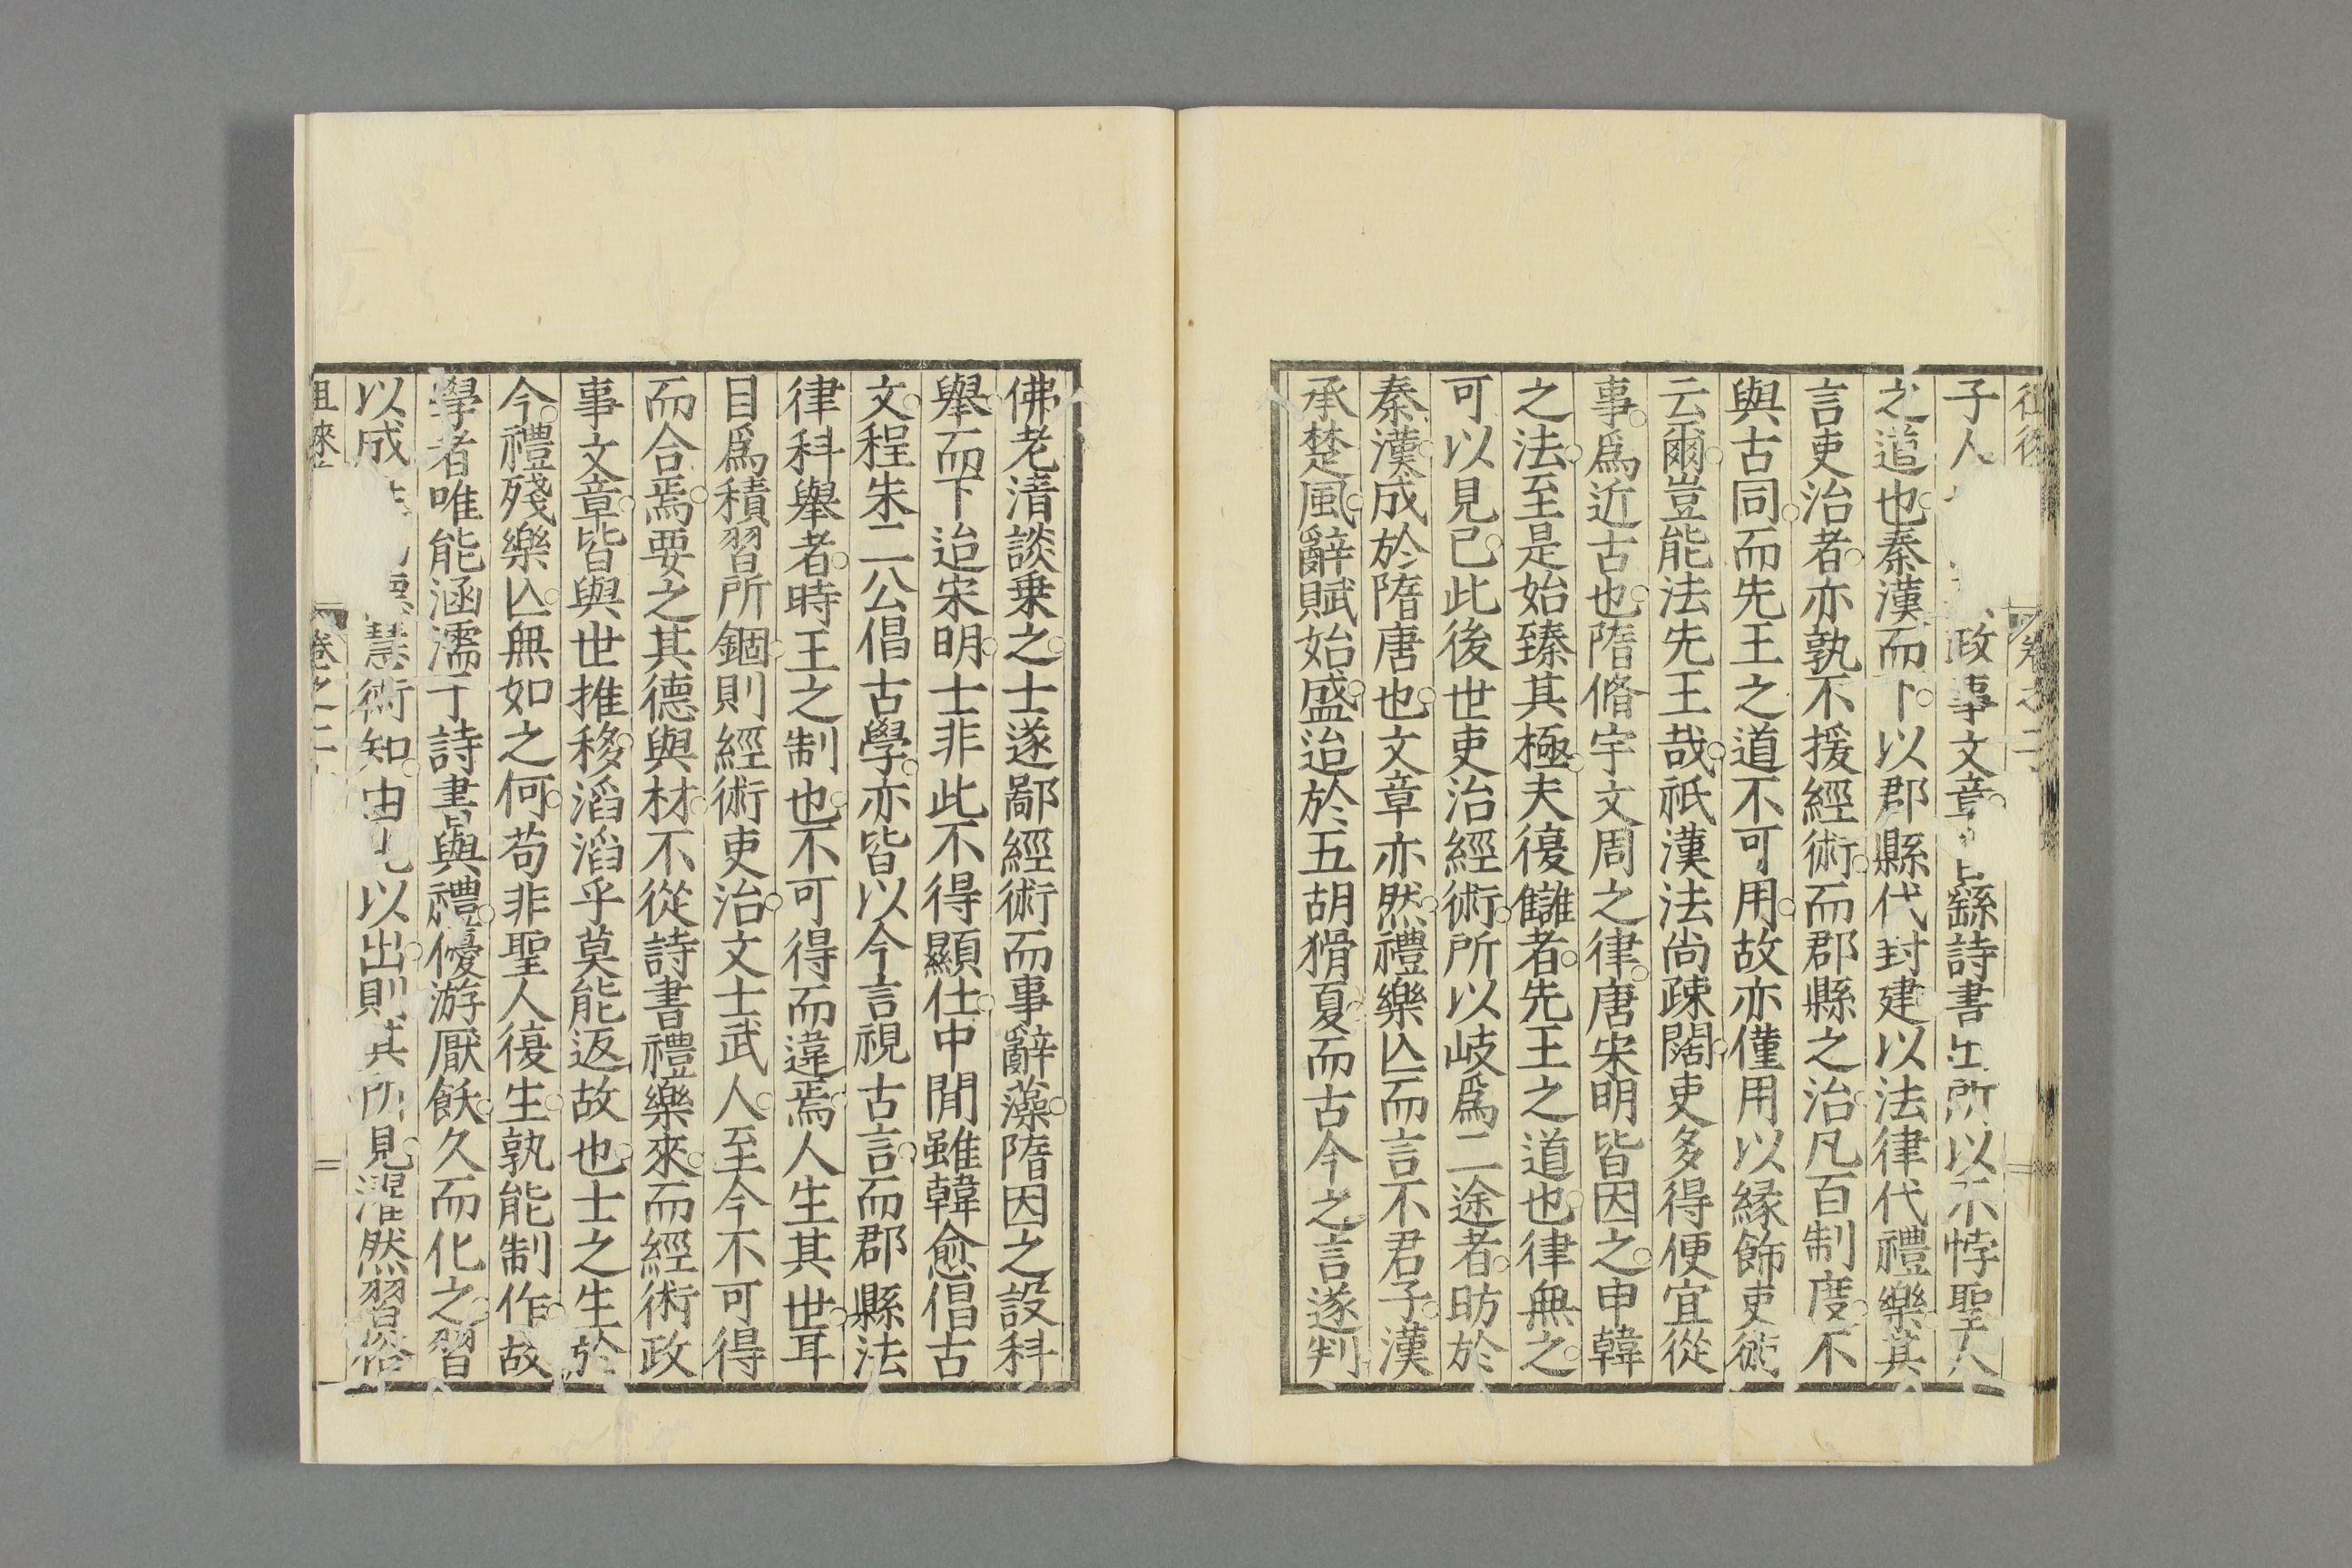 子人政事文章繇詩書出所以不悖聖人
之道也秦漢而下以郡縣代封建以法律代禮樂其
言吏治者亦孰不援經術而郡縣之治凡百制度不
與古同而先王之道不可用故亦僅用以緣飾吏術
云爾豈能法先王哉祇漢法尚疎闊吏多得便宜從
事爲近古也隋脩宇文周之律唐宋明皆因之申韓
之法至是始臻其極夫復讎者先王之道也律無之
可以見已此後世吏治經術所以岐爲二途者昉於
秦漢成於隋唐也文章亦然禮樂亾而言不君子漢
承楚風辭賦始盛迨於五胡猾夏而古今之言遂判
佛老清談乗之士遂鄙經術而事辭藻隋因之設科
舉而下迨宋明士非此不得顯仕中間雖韓愈倡古
文程朱二公倡古學亦皆以今言視古言而郡縣法
律科舉者時王之制也不可得而違焉人生其世耳
目爲積習所錮則經術吏治文士武人至今不可得
而合焉要之其德與材不從詩書禮樂來而經術政
事文章皆與世推移滔滔乎莫能返故也士之生於
今禮殘樂亾無如之何苟非聖人復生孰能制作故
學者唯能涵濡于詩書與禮優游厭飫久而化之習
以成德慧術知由此以出則其所見濯然習俗
徂徠
卷之二